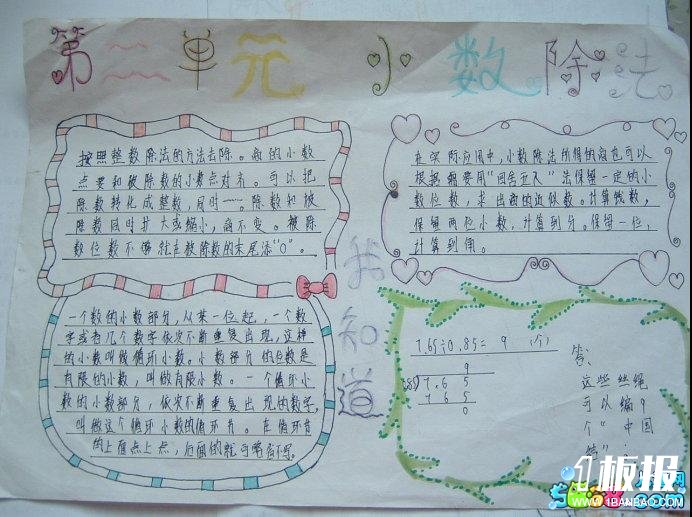 第二单元 小数除法
按照整数除法的方法去除。商的小数
点要和被除数的小数点对齐。可以把
除数转化成整数，同时……。除数和被
除数同时扩大或缩小，商不变。被除
数位数不够就在被除数的末尾添"0"。
在实际应用中，小数除法所得的商也可以
根据需要用"四舍五入"法保留一定的小
数位数，求出商的近似数。计算钱数，
保留两位小数，计算到分。保留一位，
计算到角。
我知道
一个数的小数部分，从某一位起，一个数
字或者几个数字依次不断重复出现，这样
的小数叫做循环小数。小数部分的位数是
有限的小数，叫做有限小数。一个循环小
数的小数部分，依次不断重复出现的数字，
叫做这个循环小数的循环节。在循环节
的上面点上点，后面的就可略省不写。
7.65÷0.85= 9 （个）
9
7.6 5
7 6 5
0
答：
这些丝绳
可以编9
个"中国
结"。
1板报
WWW.1BANBAO.COM